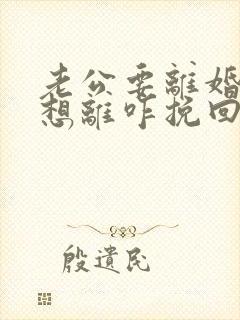 老公要離婚
想離咋挽回
殷遺民